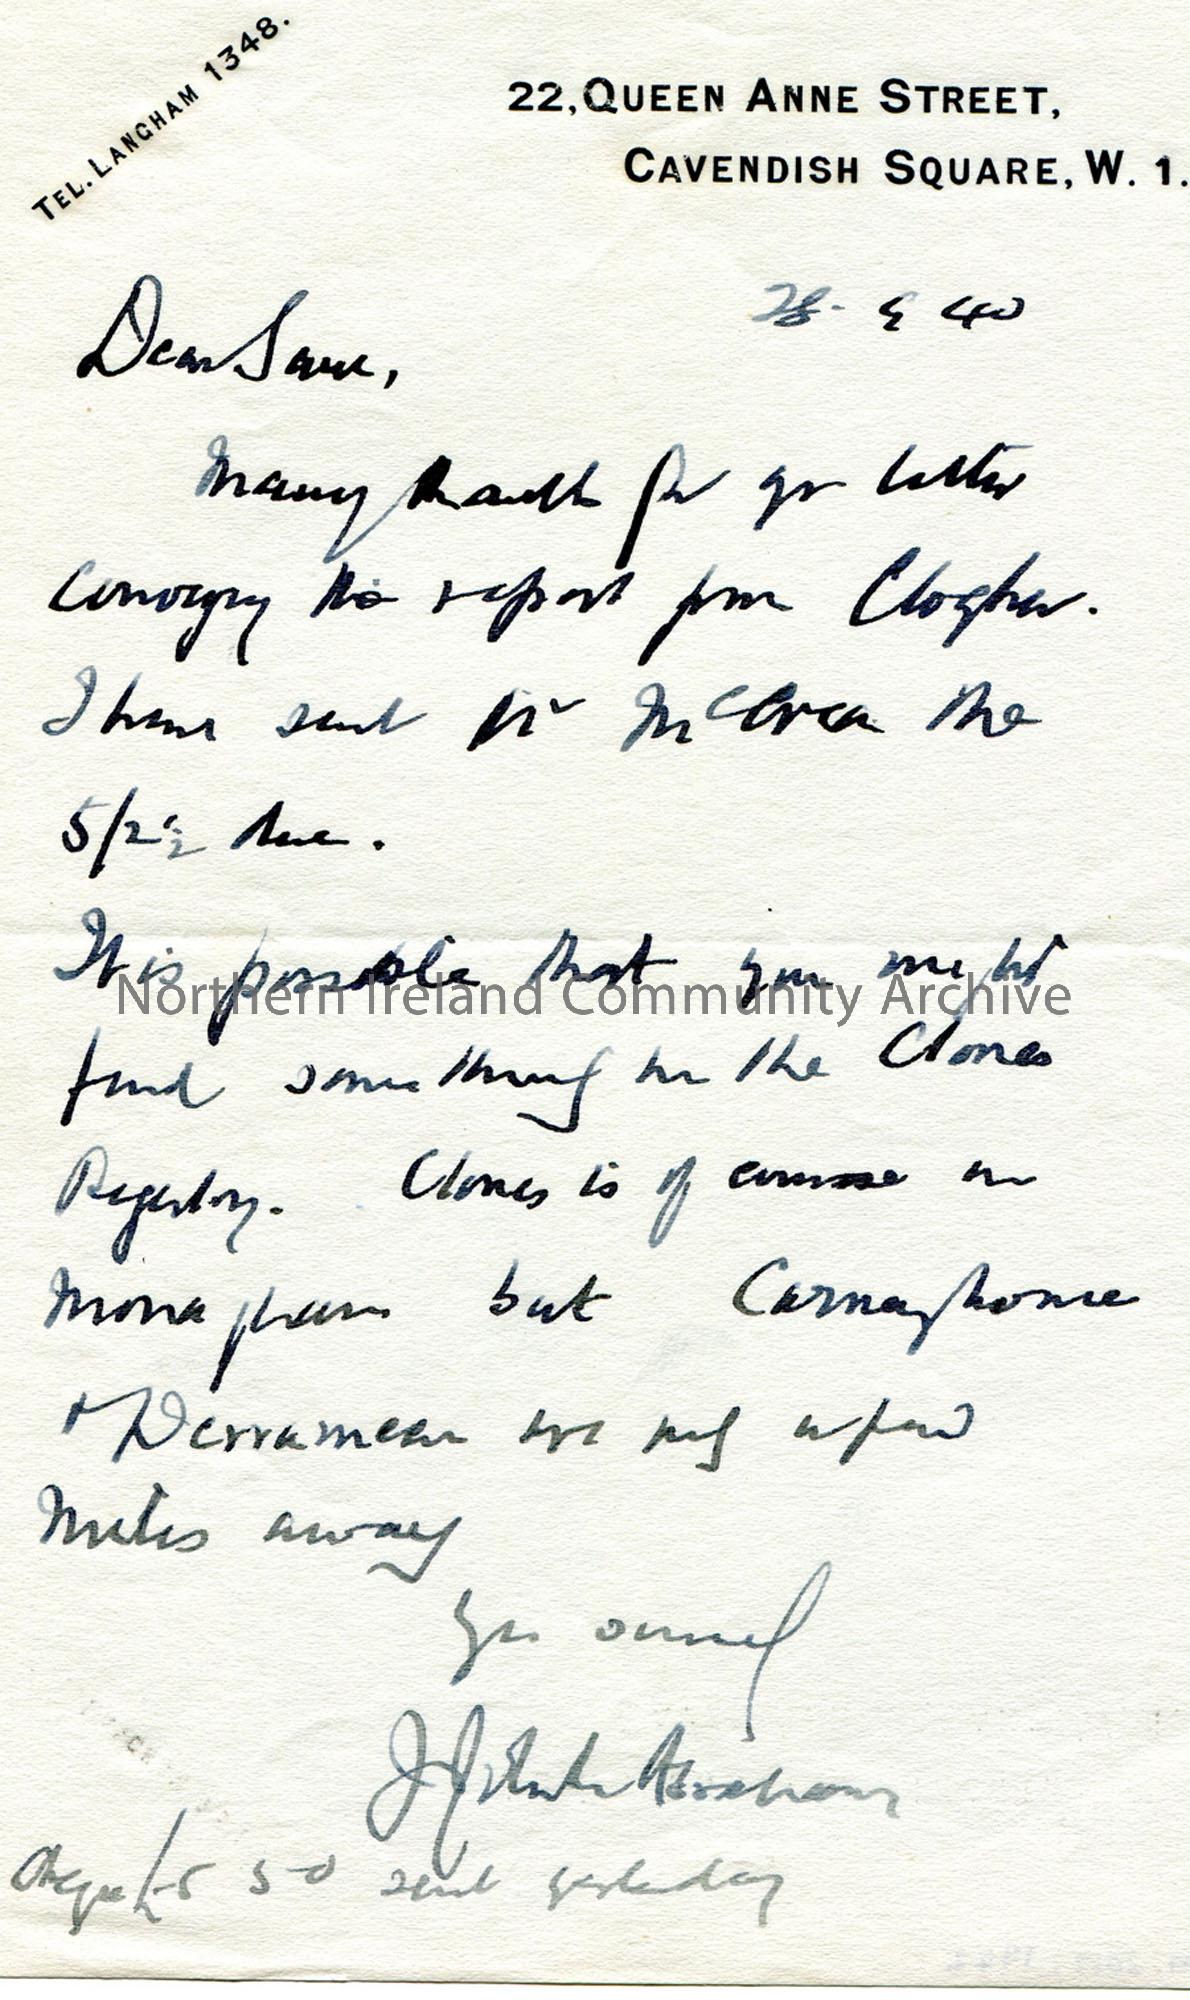 TEL. LANGHAM 1348.
22, QUEEN ANNE STREET,
CAVENDISH SQUARE, W. 1.
28. 40
Dear Sam,
Many thanks for yr letter
conveying the report from Clogher.
I have sent to McCrea the
5/2½ due.
It is possible that you might
find something in the Clones
Registry. Clones is of course in
Monaghan but Carnayhome
& Derramean are only a few
miles away
Yrs
J Johnston Abraham
Cheque £5 5-0 sent yesterday
Northern Ireland Community Archive